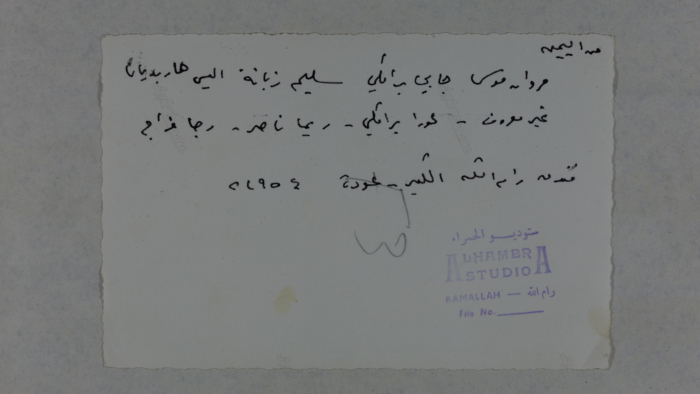 من اليمين
مروان موسى جابي برامكي سليم زبانة اليس هاربديان
غير معروف - لورا برامكي - ريما ناصر - رجا فراج
فندق رام الله الكبير - عودة ١٩٥٤
ستوديو الحمراء
ALHAMBRA
STUDIO
RAMALLAH — رام الله
File No.